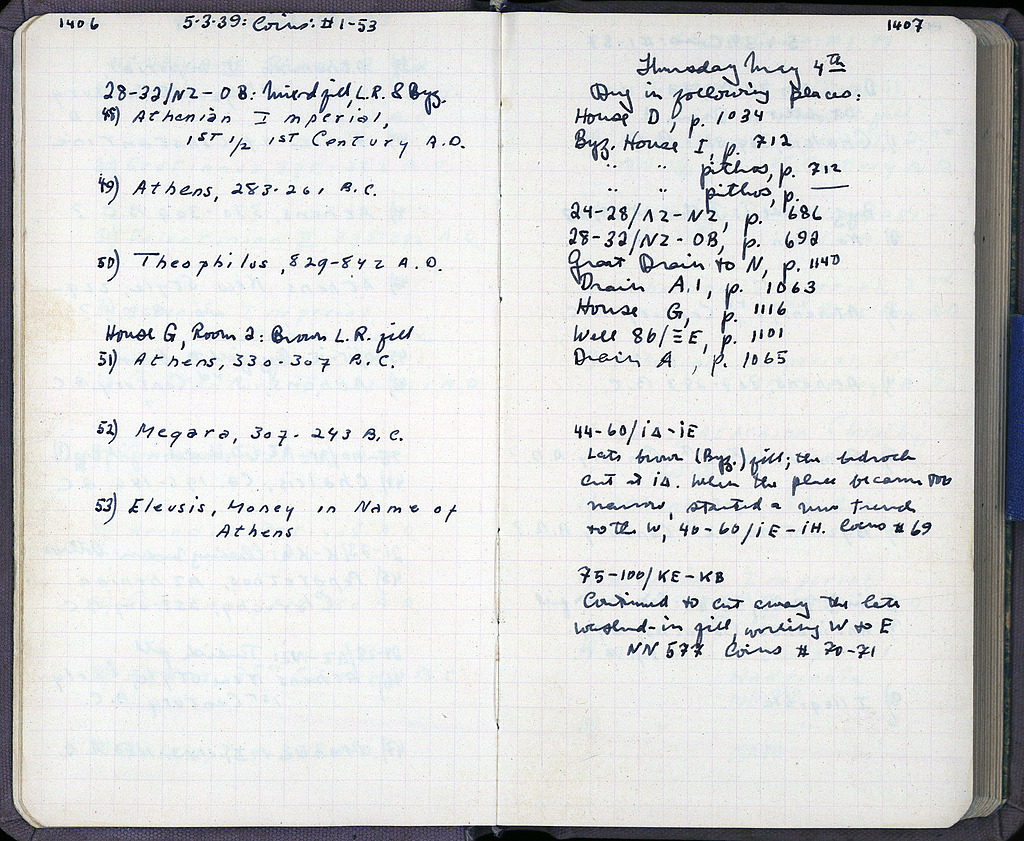 1406
5-3-39: Coins: #1-53
28-32/ΝΖ-ΟΒ: Mixed fill, L.R. & Byz.
48) Athenian Imperial,
1ST 1/2 1ST Century A.D.
49) Athens, 283-261 B.C.
50) Theophilus, 829-842 A.D.
House G, Room 2: Brown L.R. fill
51) Athens, 330-307 B.C.
52) Megara, 307-243 B.C.
53) Eleusis, Money in Name of
Athens
1407
Thursday May 4th
Dug in following places:
House D, p. 1034
Byz. House I, p. 712
" " pithos, p. 712
" " pithos, p. —
24-28/ΛΖ-ΝΖ, p. 686
28-32/ΝΖ-ΟΒ, p. 692
Great Drain to N, p. 1140
Drain A.1, p. 1063
House G, p. 1116
Well 86/ΞΕ, p. 1101
Drain A, p. 1065
44-60/ΙΔ-ΙΕ
Late brown (Byz.) fill; the bedrock
cut at ΙΔ. When the place became too
narrow, started a new trench
to the W, 40-60/ΙΕ-ΙΗ. Coins #69
75-100/ΚΕ-ΚΒ
Continued to cut away the late
washed-in fill, working W to E
ΝΝ 577 Coins # 70-71